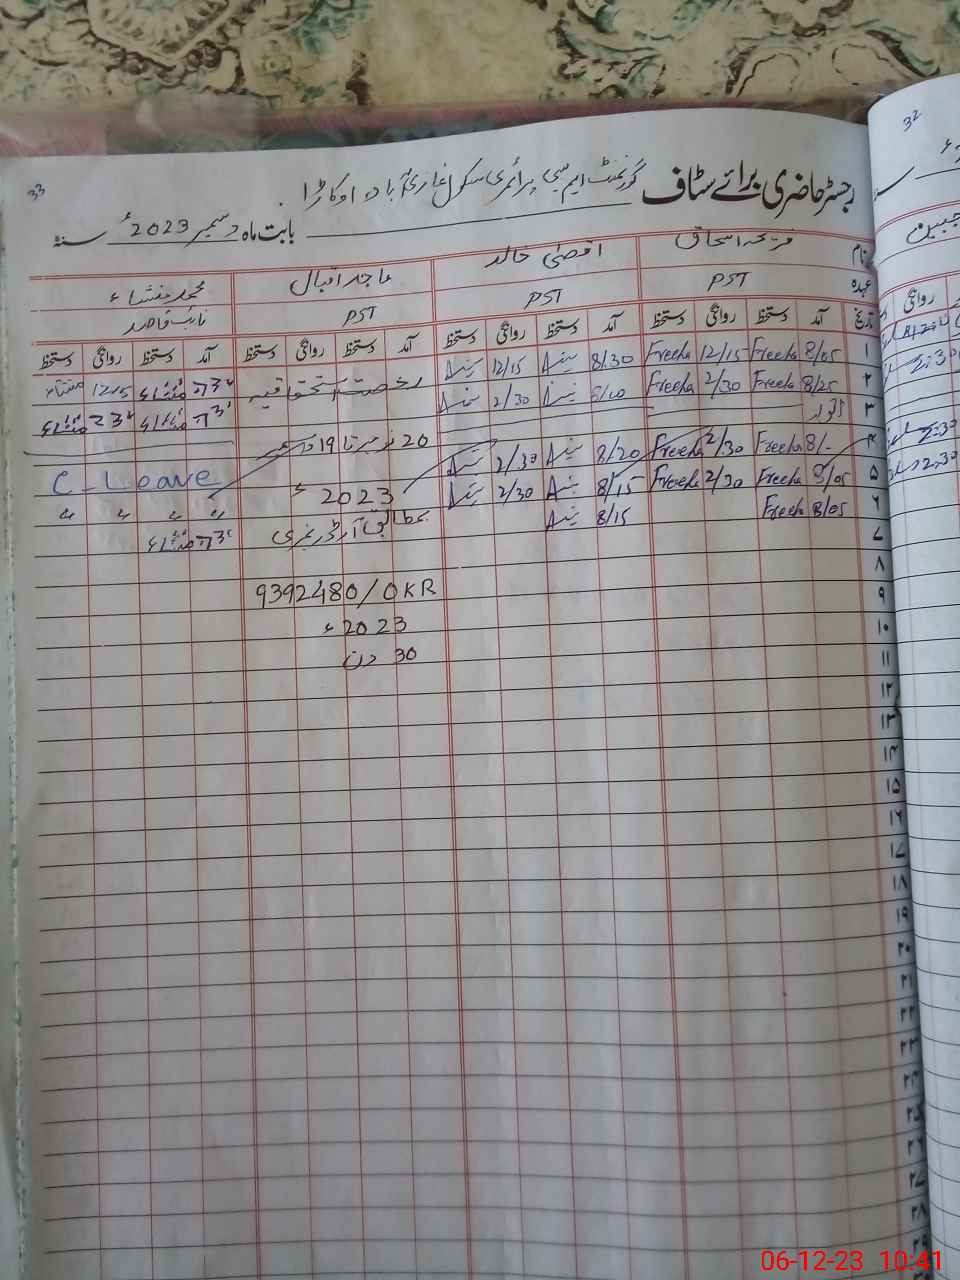 33
32
رجسٹر حاضری برائے سٹاف گورنمنٹ ایم سی پرائمری سکول غازی آباد اوکاڑا
بابت ماہ دسمبر 2023ء سنہ
نام فریحہ اسحاق اقصیٰ خالد ماجد اقبال محمد منشاء
عہدہ PST PST PST نائب قاصد
تاریخ آمد دستخط روانگی دستخط آمد دستخط روانگی دستخط آمد دستخط روانگی دستخط آمد دستخط روانگی دستخط
۱ 8/05 Freeha 12/15 Freeha 8/30 12/15 رخصت استحقاقیہ منشاء 12/15 منشاء
۲ 8/25 Freeha 2/30 Freeha 8/10 2/30 منشاء منشاء
۳ اتوار 20 نومبر تا 19 دسمبر
۴ 8/- Freeha 2/30 Freeha 8/20 2/30 2023ء C-Leave
۵ 8/05 Freeha 2/30 Freeha 8/15 2/30 بمطابق آرڈر نمبری " " " "
۶ 8/05 Freeha 8/15 منشاء
۷
۸ 9392480/OKR
۹ 2023ء
۱۰ 30 دن
۱۱
۱۲
۱۳
۱۴
۱۵
۱۶
۱۷
۱۸
۱۹
۲۰
۲۱
۲۲
۲۳
۲۴
۲۵
۲۶
۲۷
۲۸
۲۹
06-12-23 10:41